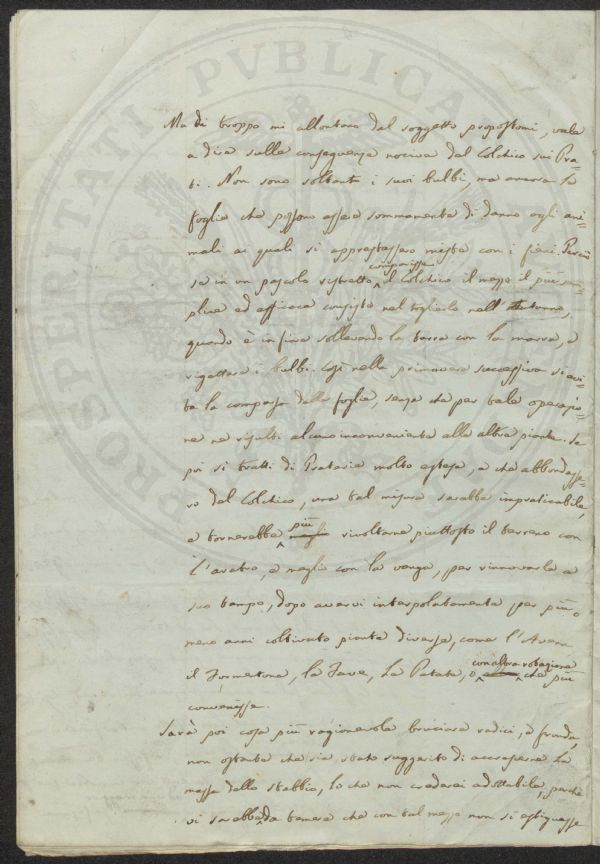 Ma di troppo mi allontano dal soggetto propostomi, vale
a dire sulle conseguenze nocive del Colchico sui Pra-
ti. Non sono soltanto i suoi bulbi, ma ancora le
foglie che possono essere sommamente di danno agli ani-
mali ai quali si apprestassero miste con i fieni. Perciò
se in un pascolo ristretto comparisse il Colchico il mezzo il più sem-
plice ed efficace consiste nel toglierlo nell'Autunno,
quando è in fiore sollevando la terra con la marra, e
rigettare i bulbi. Così nella primavera successiva si evi-
ta la comparsa delle foglie, senza che per tale operazio-
ne ne risulti alcuno inconveniente alle altre piante. Se
poi si tratti di Praterie molto estese, e che abbondasse-
ro del Colchico, una tal misura sarebbe impraticabile,
e tornerebbe più meglio rivoltarne piuttosto il terreno con
l'aratro, o meglio con la vanga, per rinnovarle a
suo tempo, dopo avervi interpolatamente per più o
meno anni coltivato piante diverse, come l'Avena
il Formentone, le Fave, la Patata, o con altra rotazione che più
convenisse.
Sarà poi cosa più ragionevole bruciare radici, e fronda,
non ostante che sia stato suggerito di accrescerne la
massa dello stabbio, lo che non crederei adottabile, perchè
vi sarebbe da temere che con tal mezzo non si estinguesse
PROSPERITATI PVBLICAE